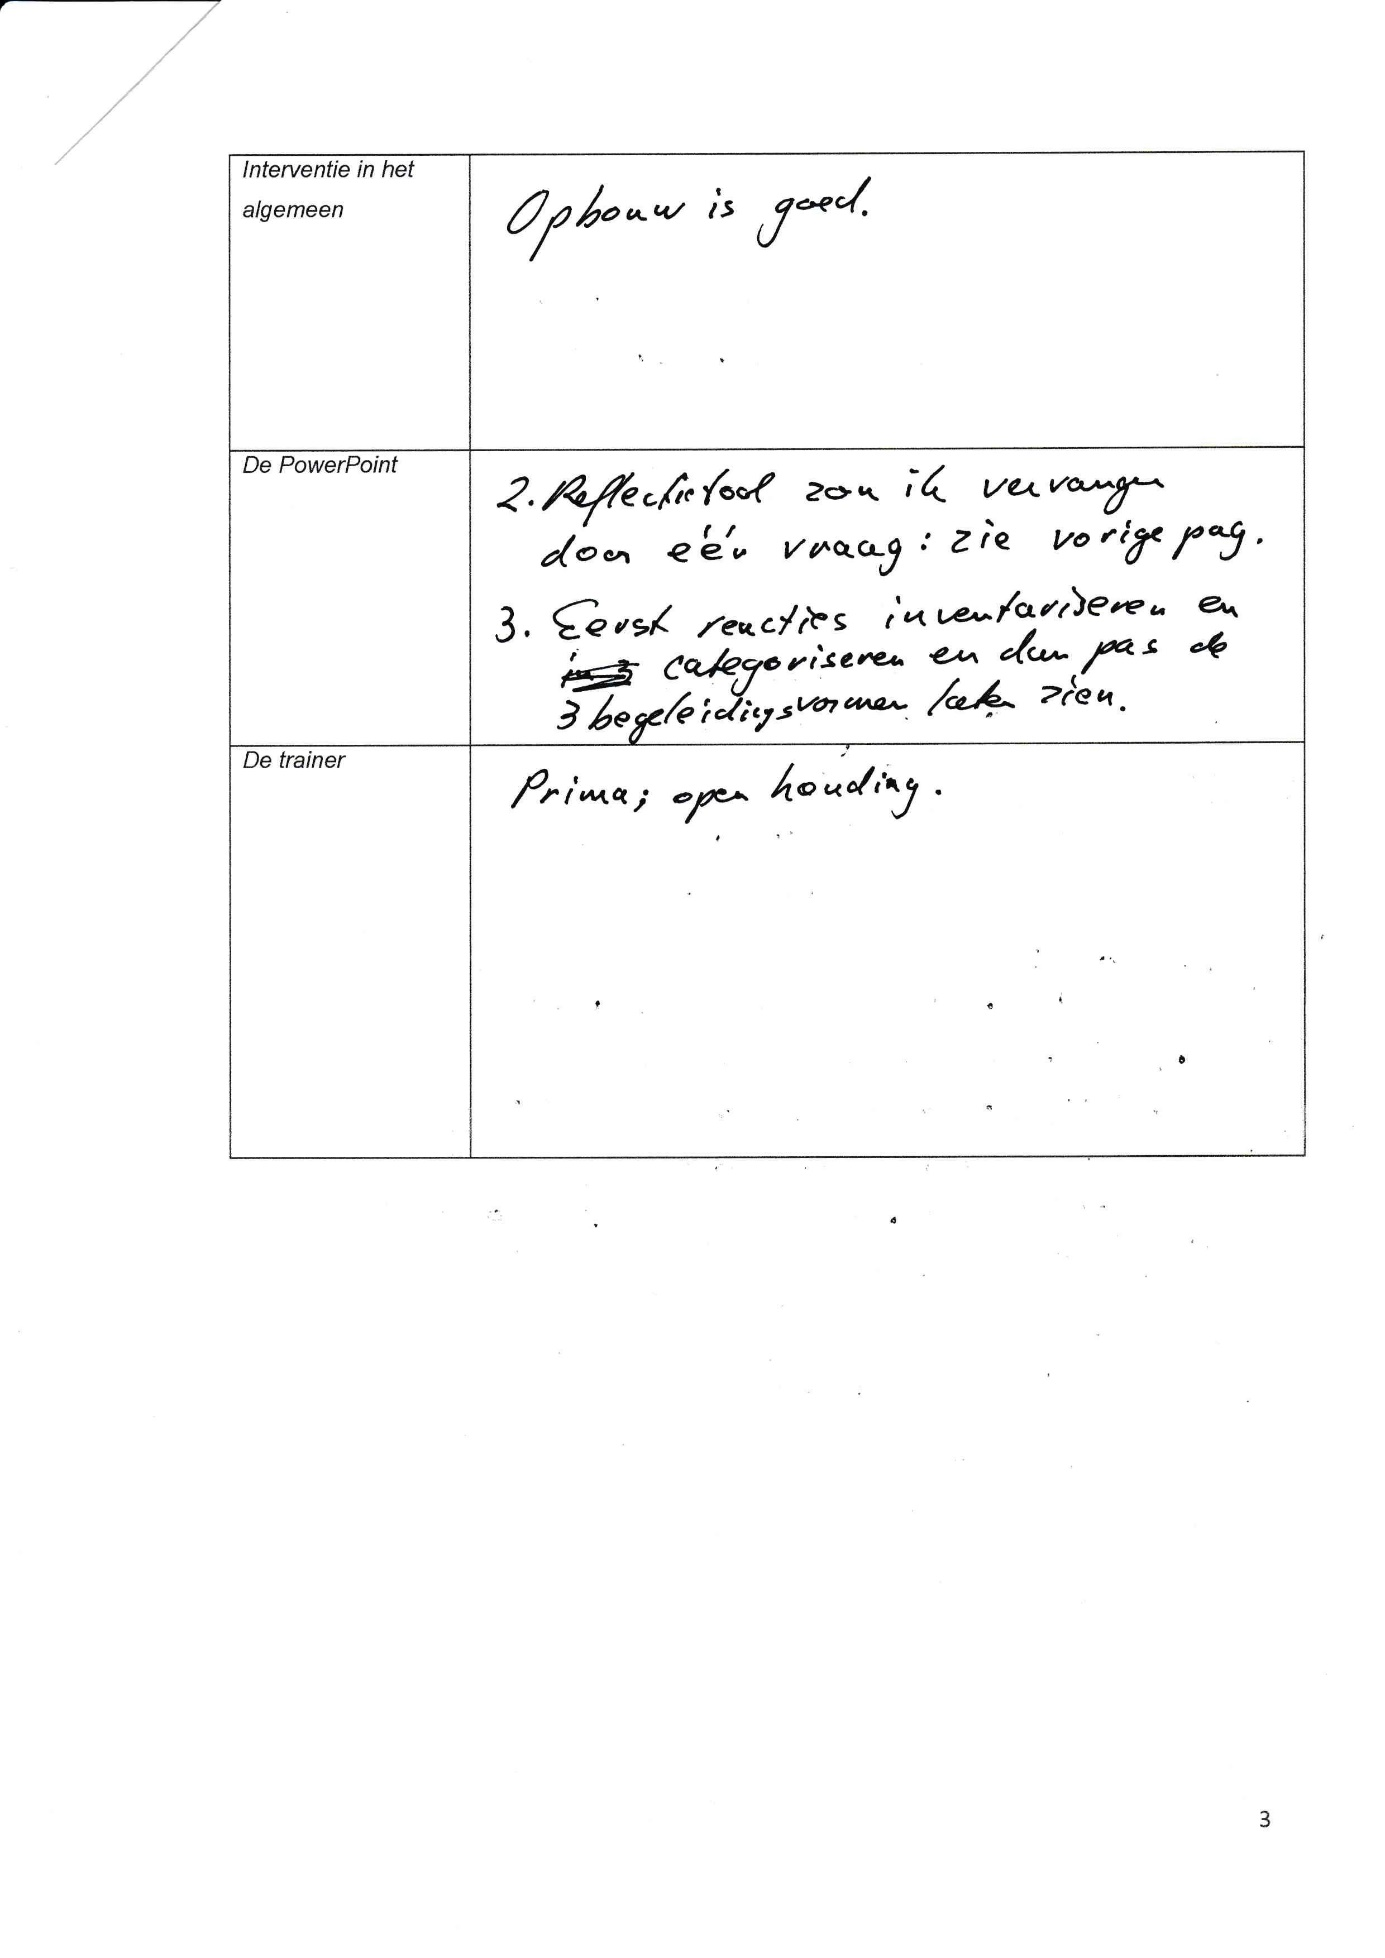 Interventie in het
algemeen
Opbouw is goed.
De PowerPoint
2. Reflectietool zou ik vervangen
door één vraag: zie vorige pag.
3. Eerst reacties inventariseren en
categoriseren en dan pas de
3 begeleidingsvormen laten zien.
De trainer
Prima; open houding.
3